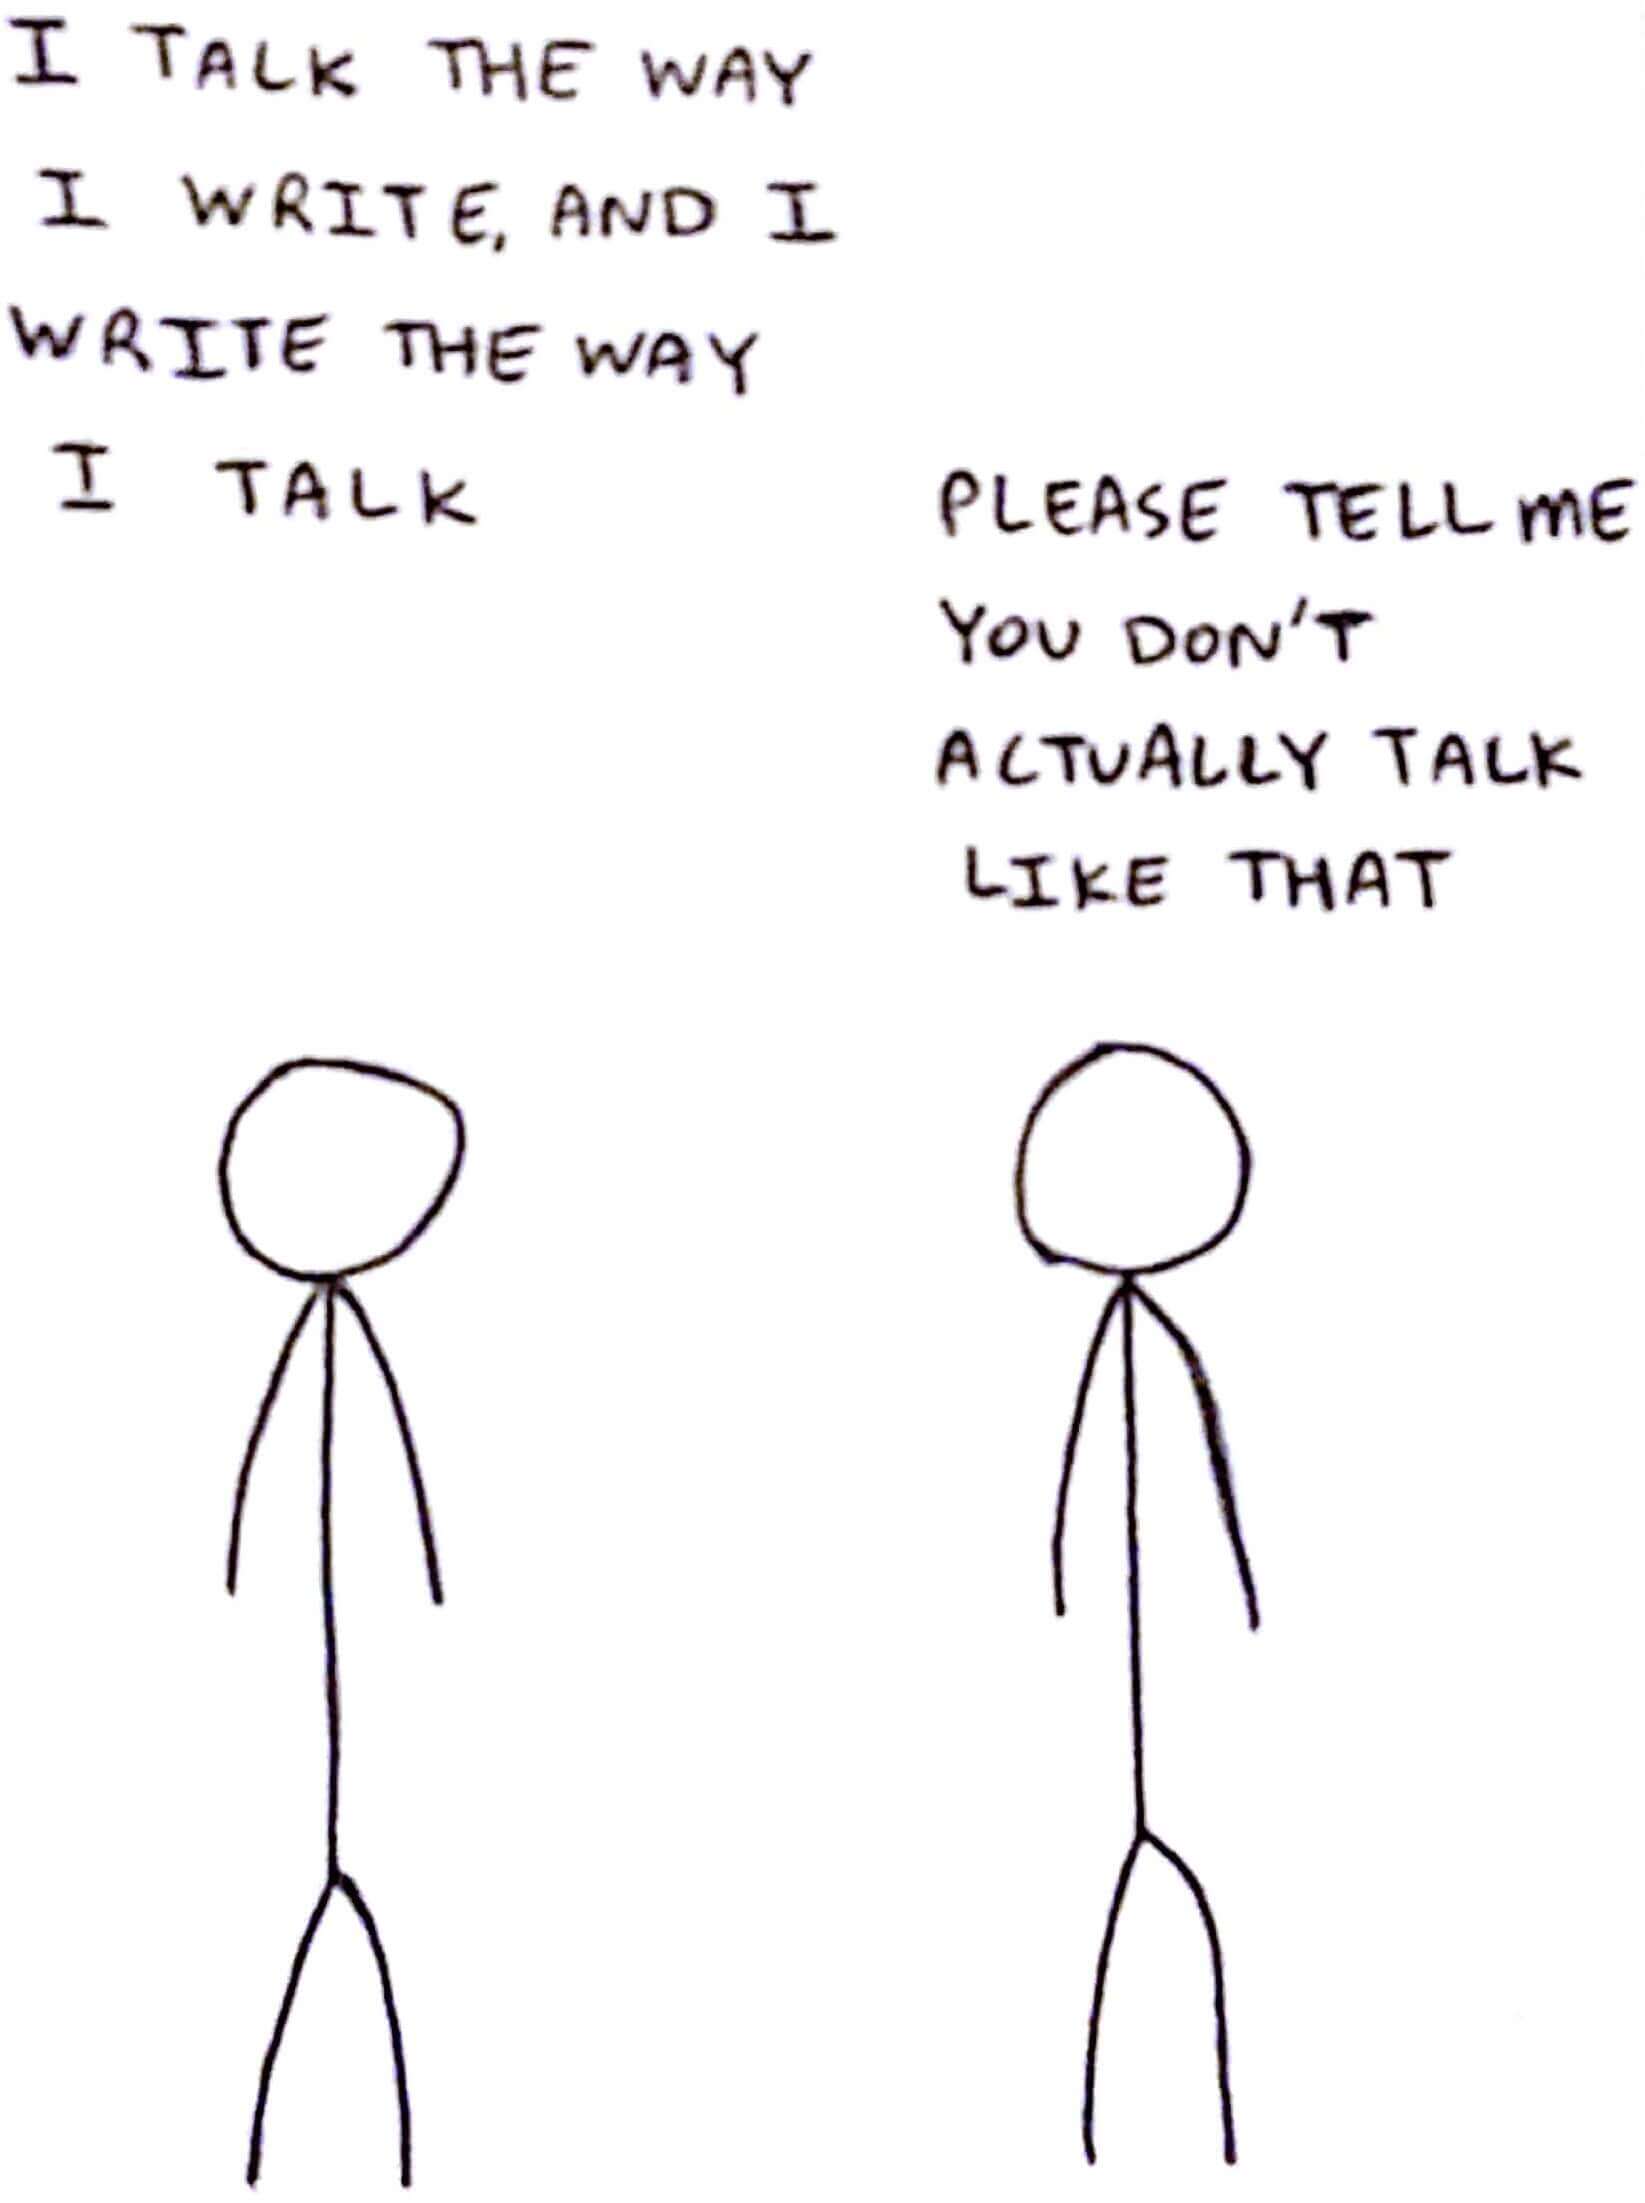 I TALK THE WAY
I WRITE, AND I
WRITE THE WAY
I TALK
PLEASE TELL ME
YOU DON'T
ACTUALLY TALK
LIKE THAT